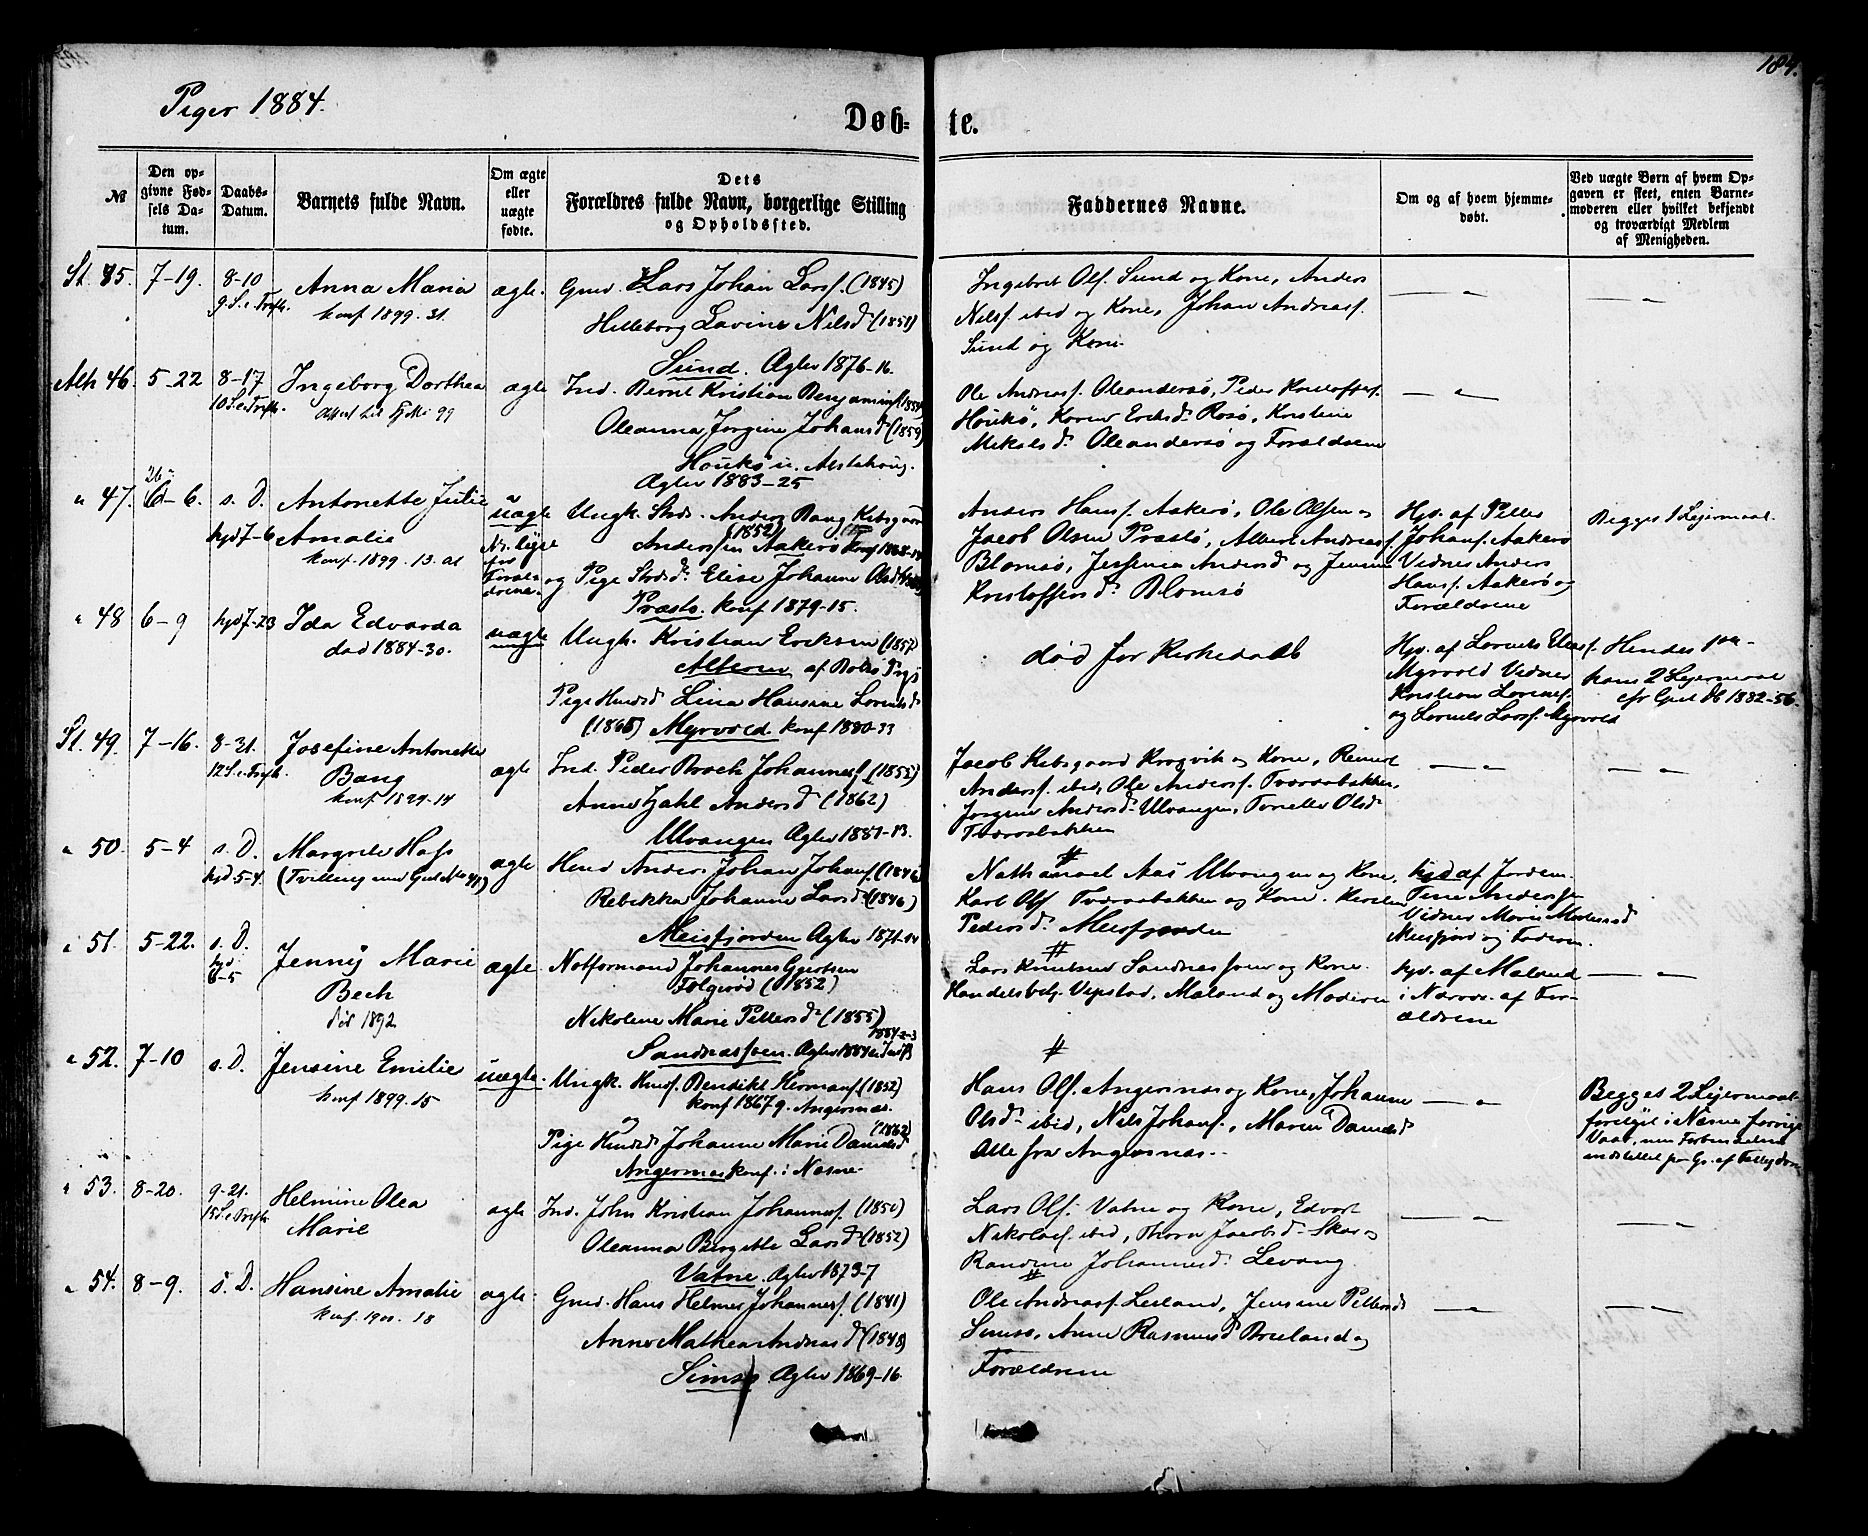 184.
Piger 1884.
Døb-te.
№
Den op-
givne Fød-
sels Da-
tum.
Daabs-
Datum.
Barnets fulde Navn.
Om ægte
eller
uægte
fødte.
Dets
Forældres fulde Navn, borgerlige Stilling
og Opholdssted.
Faddernes Navne.
Om og af hvem hjemme-
døbt.
Ved uægte Børn af hvem Op-
gaven er skeet, enten Barne-
moderen eller hvilket bekjendt
og troværdigt Medlem
af Menigheden.
St. 45.
7-19.
8-10
9 S. e. Trefh.
Anna Maria
konf 1899. 31.
ægte.
Gmd. Lars Johan Larsf. (1845)
Hilleborg Lavine Nilsd (1851)
Sund. Ægtev 1876-16.
Ingebret Olf. Sund og Kone, Anders
Nilsf. ibid og Kone, Johan Andreasf.
Sund og Kone
Alh 46.
5-22
8-17
10 S. e. Trefh.
Ingeborg Dorthea
ægte
Ind. Bernt Kristian Benjaminsf
Oleanna Jorgine Johansd (1859)
Ægtev 1883-25
Ole Andreasf. Oleandersø, Peder Kristoffersf.
Mikalsd. Oleandersø og Forældrene
" 47.
6-6.
s. D.
hjd 7-6
Antonette Julie
Amalie
konf. 1899. 13.
uægte
Ungk. Strds. Anders Bang Kibsgaard
Andersen Aakerø
(1852)
og Pige Strdsd. Elise Johanne Olsd
Præstø. konf 1879-15.
Anders Hansf. Aakerø, Ole Olsen
Jacob Olsen Præstø, Albert Andreasf
Blomsø, Jessine Andersd og Jensine
Kristoffersd. Blomsø
Hjv. af Petter
Johansf. Aakerø
Vidner Anders
Hansf. Aakerø og
Forældrene
Begges 1 Lejermaal.
" 48
6-9
hjd 7-23
Ida Edvarda
død 1884-30.
uægte
Ungk. Kristian Eriksen (1857)
Pige Husmd Lina Hansine Lorntsd
(1865) Myrvold konf 1880-33
død før Kirkedaab
Hjv. af Lornts Eliasf.
Myrvold Vidner
Kristian Lorntsf.
og Lornts Larsf. Myrvold
Hendes 1ste
hans 2 Lejermaal
cfr Gut D 1882-56.
St. 49.
7-16.
8-31.
12 S. e. Trefh.
Josefine Antonette
Bang
ægte
Ind. Peder Broch Johannesf. (1855)
Anne Hjahl Andersd (1862)
Ulvangen Ægtev 1881-13.
Jacob Kibsgaard Krogvik og Kone,
Andersf. ibid, Ole Andersf. Tværaabakken,
Jorgine Andersd. Ulvangen,
Tværaabakken
" 50.
5-4
s. D.
hjd 5-4.
Margrete Hass
(Tvilling med Gut No 41)
ægte
Hmd Anders Johan Johansf. (1846)
Rebekka Johanne Larsd (1846)
Meisfjorden Ægtev 1871-14
Nathanael Aas Ulvangen og Kone,
Karl Olf Tværaabakken og Kone.
Pedersd. Meisfjorden
hjd af Jordem.
Meisfjord og Faderen.
" 51.
5-22.
s. D.
hjd
6-5
Jenny Marie
Bech
død 1892
ægte.
Notformand Johannes Gjertsen
(1852)
Nikoline Marie Pettersd (1855)
Lars Knutsen Sandnessjøen og Kone.
Handelsbetj. Vepstad, Maland og Moderen
hjv. af Maland
i Nærvær. af For-
ældrene
" 52.
7-10
s. D.
Jensine Emilie
konf 1899. 15
uægte.
Ungk. Hmdsf. Bendikt Hermansf. (1852)
konf 1867 9. Angersnæs.
og
Pige Hmdsd Johanne Marie Danielsd
(1862)
Angersnæs konf. i Næsne
Hans Olf. Angersnæs og Kone, Johanne
Olsd ibid, Nils Johansf., Maren Danielsd
Alle fra Angersnæs.
Begges 2 Lejermaal
" 53.
8-20.
9-21.
15 S. e. Trefh
Helmine Olea
Marie
ægte
Ind. John Kristian Johannesf. (1850)
Oleanna Bergitte Larsd (1852)
Vatne. Ægtev 1873-7
Lars Olf. Vatne og Kone, Edvart
Nikolaif. ibid,
Randine Johannesd. Levang.
" 54.
8-9.
s. D.
Hansine Amalie
konf. 1900. 18
ægte.
Gmd. Hans Helmer Johannesf. (1841)
Anne Mathea Andreasd (1848)
Simsø Ægtev 1869-16.
Ole Andreasf. Leiland, Jensine Pettersd
Simsø, Anne Rasmusd Breiland og
Forældrene